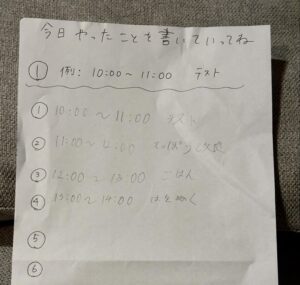 今日やったことを書いていってね
① 例: 10:00～11:00 テスト
① 10:00～11:00 テスト
② 11:00～
③ 12:00～13:00 ごはん
④ 13:00～14:00
⑤
⑥